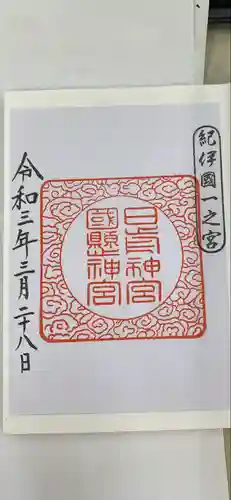 紀伊國一之宮
日前神宮
國懸神宮
令和三年三月二十八日